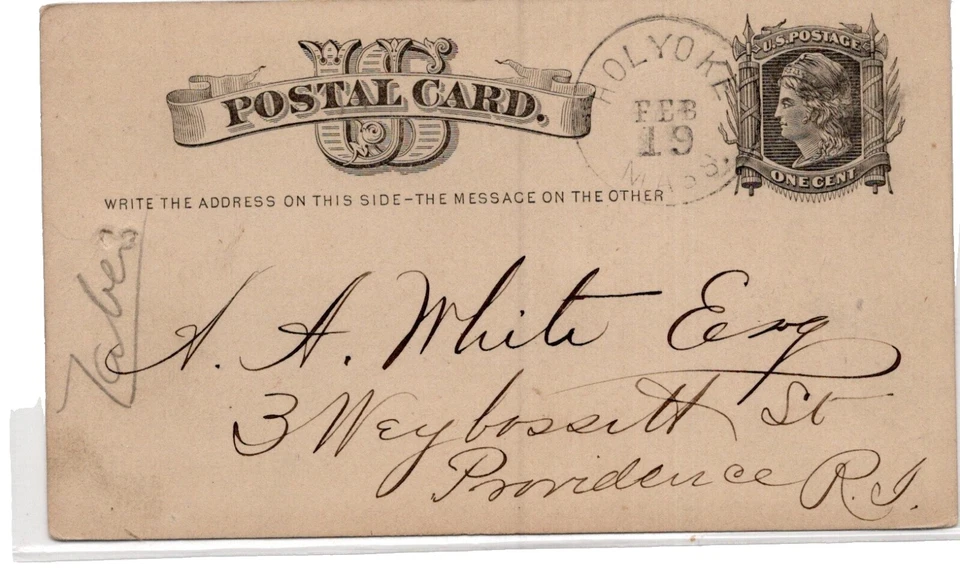 US
POSTAL CARD.
HOLYOKE
FEB
19
MASS.
U.S. POSTAGE
ONE CENT
WRITE THE ADDRESS ON THIS SIDE-THE MESSAGE ON THE OTHER
A. A. White Esq
3 Weybossett St
Providence R.I.